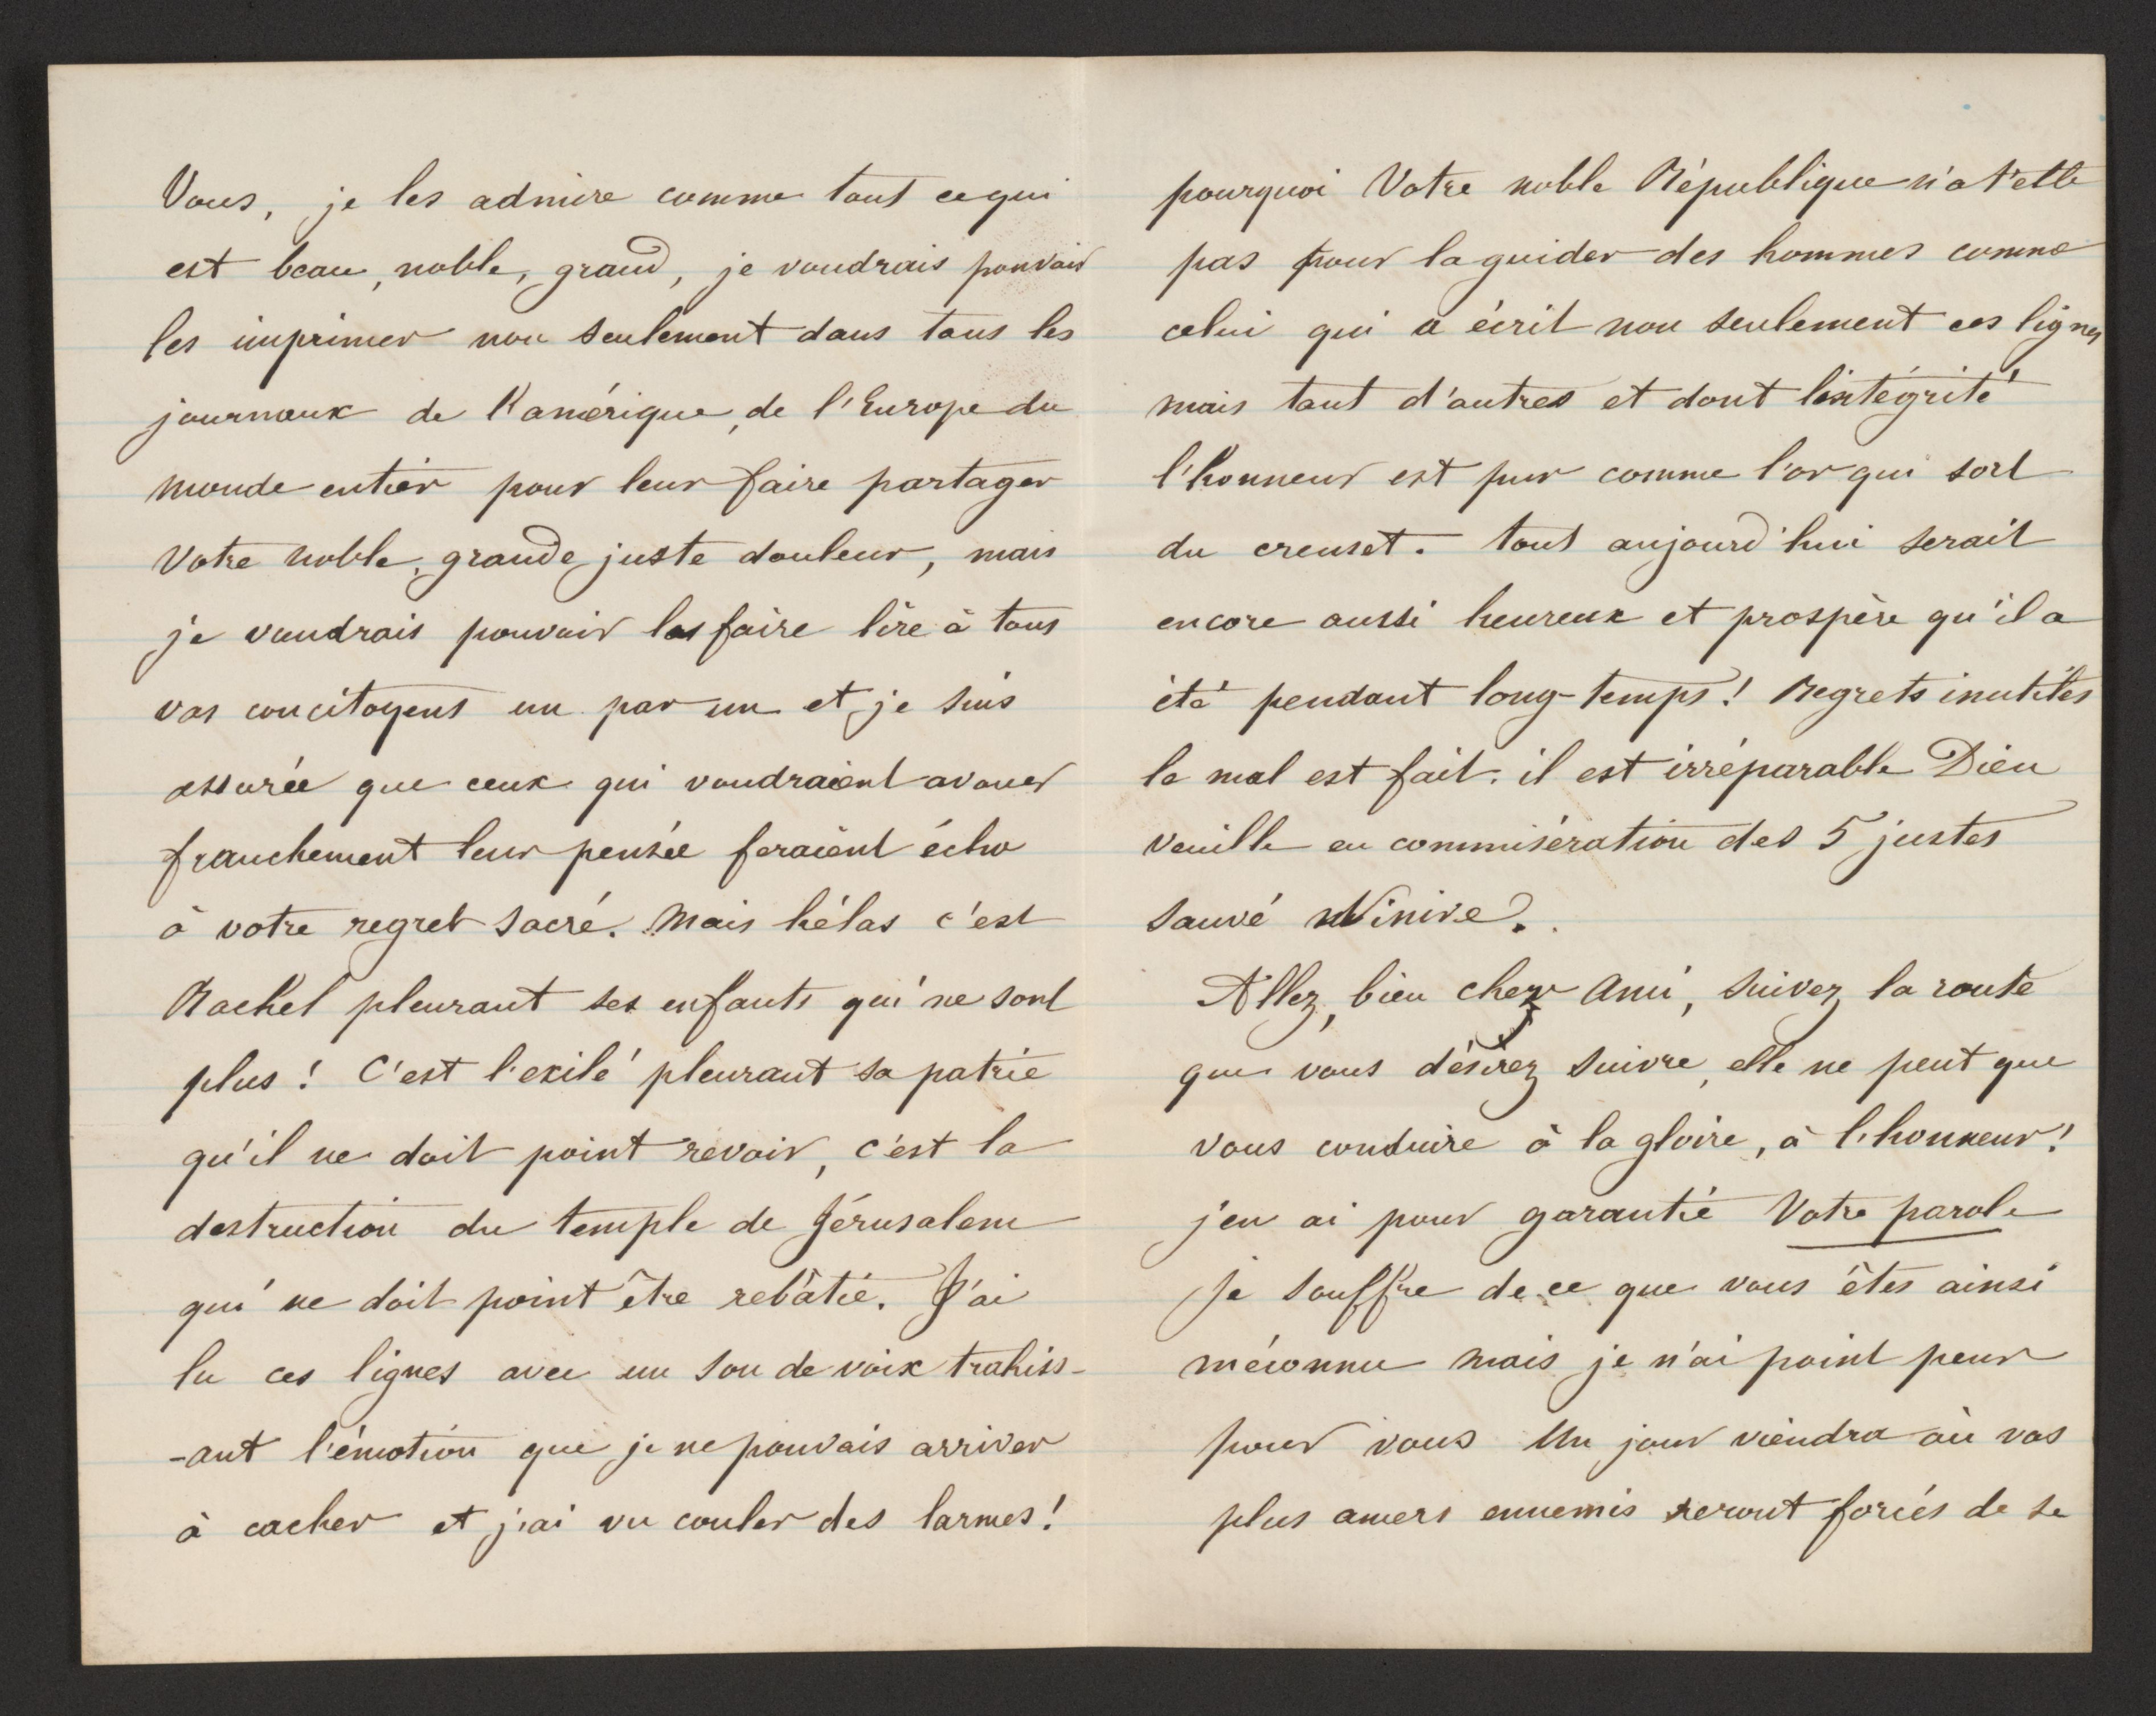 Vous, je les admire comme tout ce qui
est beau, noble, grand, je voudrais pouvoir
les imprimer non seulement dans tous les
journaux de l'amérique, de l'Europe du
monde entier pour leur faire partager
votre noble, grande, juste douleur, mais
je voudrais pouvoir les faire lire à tous
vos concitoyens un par un et je suis
assurée que ceux qui voudraient avouer
franchement leur pensée feraient écho
à votre regret sacré. Mais hélas c'est
Rachel pleurant ses enfants qui ne sont
plus ! C'est l'exilé pleurant sa patrie
qu'il ne doit point revoir, c'est la
destruction du temple de Jérusalem
qui ne doit point être rebâtie. J'ai
lu ces lignes avec un son de voix trahiss-
-ant l'émotion que je ne pouvais arriver
à cacher et j'ai vu couler des larmes !
pourquoi Votre noble République n'a t'elle
pas pour la guider des hommes comme
celui qui a écrit non seulement ces lignes
mais tant d'autres et dont l'intégrité
l'honneur est pur comme l'or qui sort
du creuset. tout aujourd'hui serait
encore aussi heureux et prospère qu'il a
été pendant long-temps ! Regrets inutiles
le mal est fait. il est irréparable Dieu
veuille en commisération des 5 justes
sauvé Ninive.
Allez, bien cher Ami, suivez la route
que vous désirez suivre, elle ne peut que
vous conduire à la gloire, à l'honneur !
j'en ai pour garantie Votre parole
Je souffre de ce que vous êtes ainsi
méconnu mais je n'ai point peur
pour vous Un jour viendra où vos
plus amers ennemis seront forcés de se